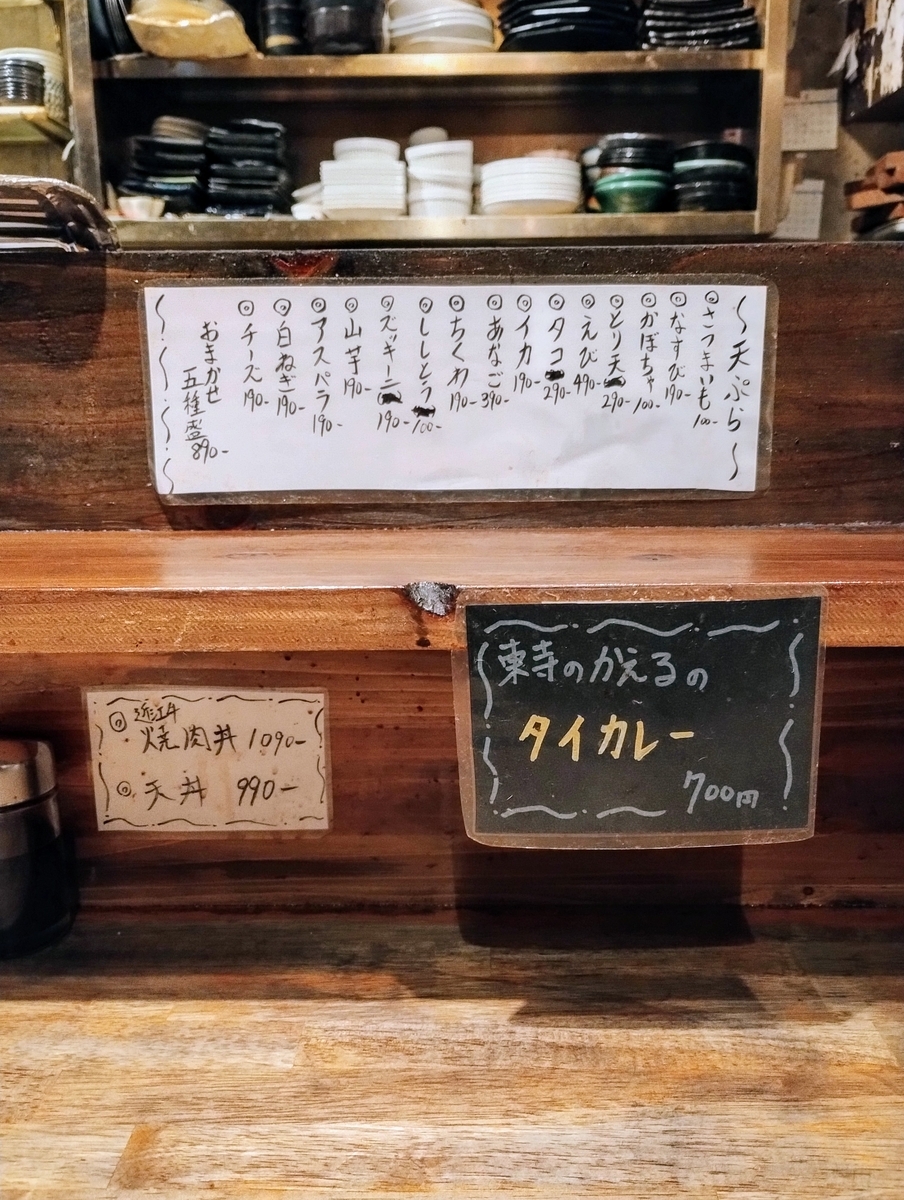 〜天ぷら〜
◎さつまいも 100-
◎なすび 190-
◎かぼちゃ 100-
◎とり天 290-
◎えび 490-
◎タコ 290-
◎イカ 190-
◎あなご 390-
◎ちくわ 190-
◎ししとう 100-
◎ズッキーニ 190-
◎山芋 190-
◎アスパラ 190-
◎白ねぎ 190-
◎チーズ 190-
おまかせ
五種盛 890-
◎近江牛
焼肉丼 1090-
◎天丼 990-
東寺のかえるの
タイカレー
700円